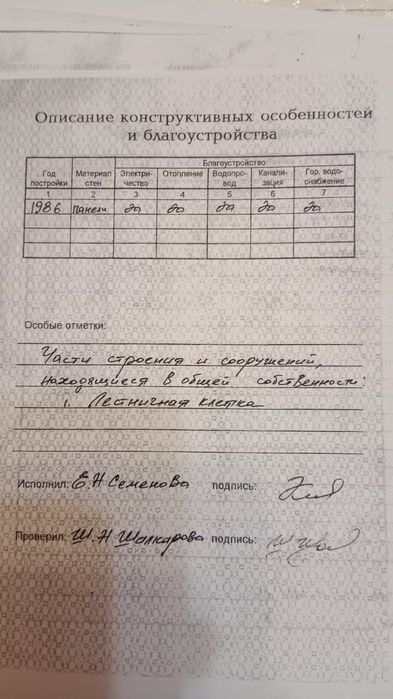 Описание конструктивных особенностей
и благоустройства
Год постройки Материал стен Благоустройство
Электри-чество Отопление Водопро-вод Канали-зация Гор. водо-снабжение
1 2 3 4 5 6 7
1986 панели да да да да да
Особые отметки:
Части строения и сооружений,
находящиеся в общей собственности:
1. Лестничная клетка
Исполнил: Е.Н Семенова подпись:
Проверил: Ш.Н Шалкарова подпись: